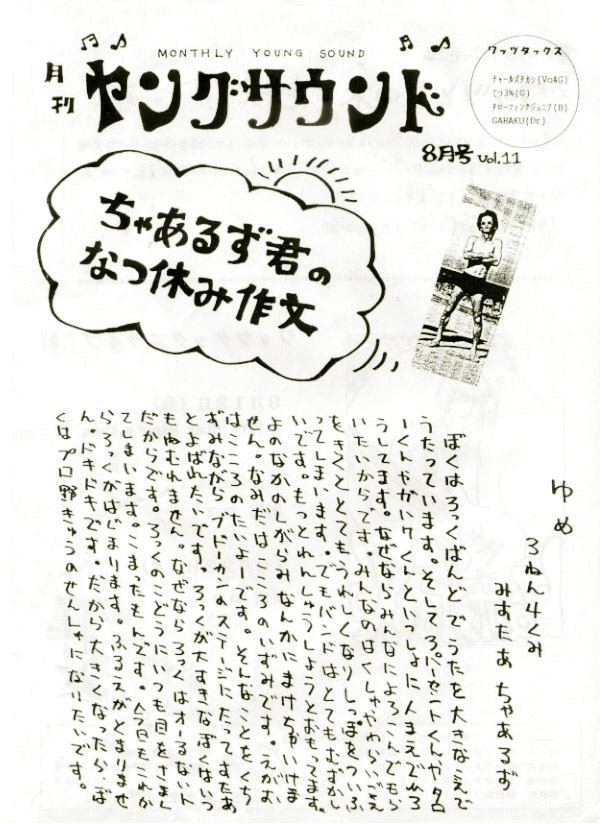 MONTHLY YOUNG SOUND
月刊
ヤングサウンド
8月号 vol.11
ワッツタックス
チャールズタカシ(Vo&G)
てつ3%(G)
タローファンクジュニア(B)
GAHAKU(Dr)
ちゃあるず君の
なつ休み作文
ゆめ
3ねん4くみ
みすたあ ちゃあるず
ぼくはろっくばんどでうたを大きなこえで
うたっています。そして3パーセントくんやタロ
ーくんやがいけくんといっしょに人まえで
うしてます。なぜならみんなによろこんでもら
いたいからです。みんなのはくしゅやわらいごえ
をきくととてもうれしくなりしっぽをついふ
ってしまいます。でもバンドはとてもむずかし
いです。もっとれんしゅうしようとおもってます。
よのなかのしがらみなんかにまけちゃいけま
せん。なみだはこころのいずみです。えがお
はこころのたいよーです。そんなことをくち
ずみながらブドーカンのステージにたってすたあ
とよばれたいです。ろっくが大すきなぼくはいつ
もねむれません。なぜならろっくはオーるないト
だからです。ろっくのこどうにいつも目をさまし
てしまいます。こまったもんです。今日もこれか
らろっくがはじまります。ふるえがとまりませ
ん。ドキドキです。だから大きくなったらぼ
くはプロ野きゅうのせんしゅになりたいです。